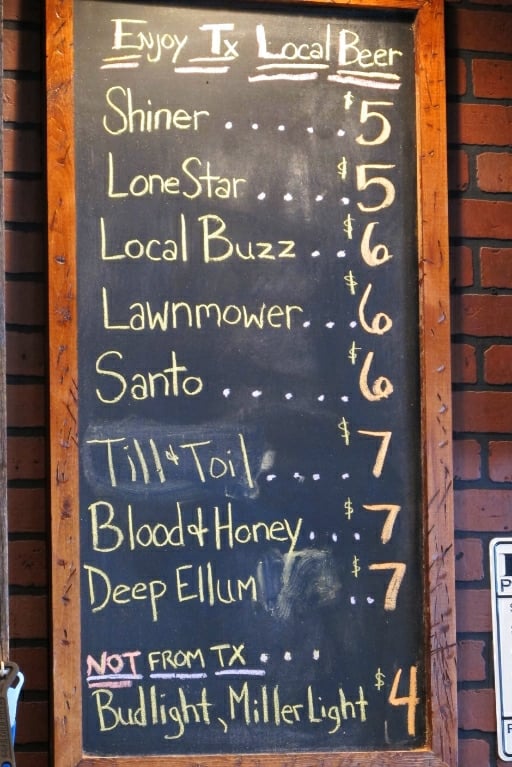 Enjoy Tx Local Beer
Shiner ...... $5
LoneStar .... $5
Local Buzz .. $6
Lawnmower... $6
Santo ..... $6
Till & Toil .... $7
Blood & Honey... $7
Deep Ellum .. $7
NOT FROM TX ...
Budlight, Miller Light $4